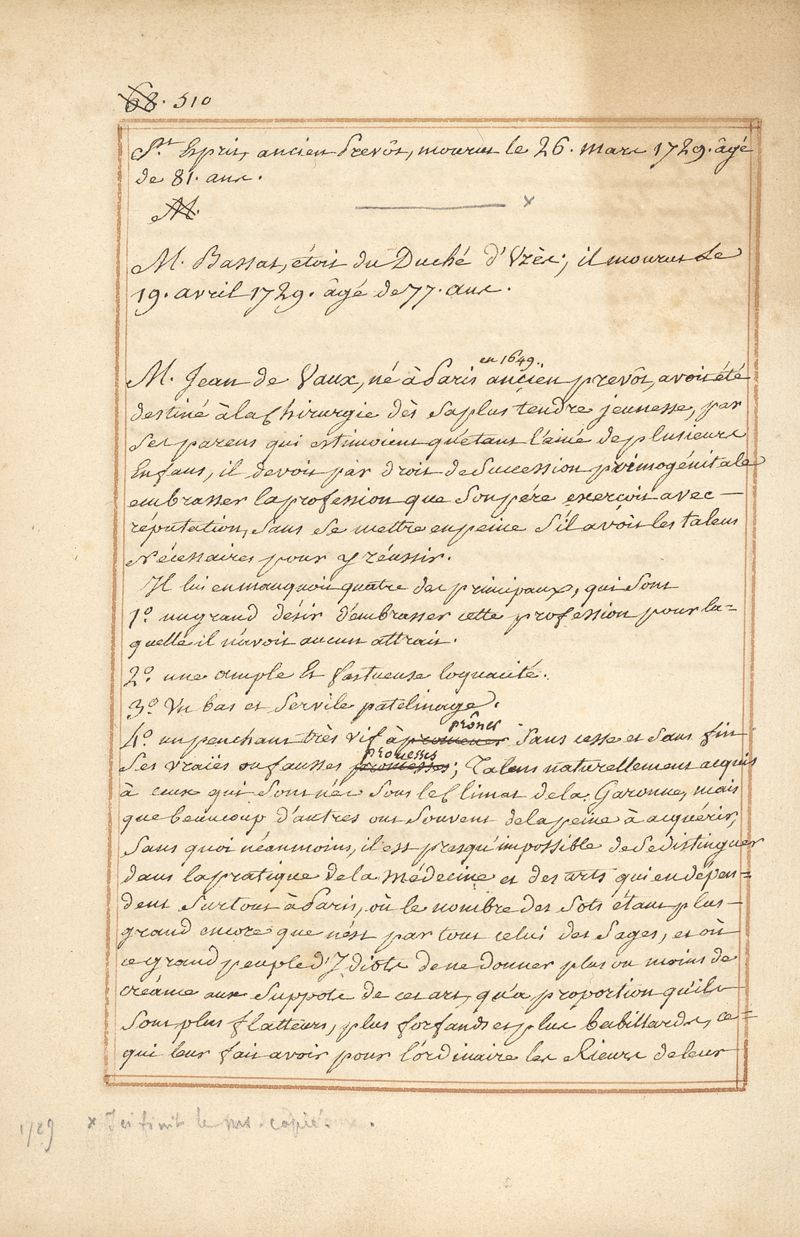 68. 510
St. Esprit, ancien Prevôt, mourut le 26. mars 1729. âgé
de 81. ans.
M.
x
M. Bassat, étoit du Duché d'Uzès; il mourut le
19. avril 1729. âgé de 77. ans.
en 1649.
M. Jean de Vaux, né à Paris ancien prevôt, avoit été
destiné à la Chirurgie dès sa plus tendre jeunesse, par
ses parens qui estimoient qu'étant l'ainé de plusieurs
Enfans, il devoit par droit de Succession primogénitale
embrasser la profession que son pére exerçoit avec
réputation, sans se mettre en peine s'il avoit les talens
nécessaires pour y réussir.
Il lui en manquoit quatre des principaux, qui sont
1º. un grand désir d'embrasser cette profession pour la=
quelle il n'avoit aucun attrait.
2º. une ample et fastueuse loquacité.
3º. Un bas et servile patelinage.
prôner
4º. un penchant très vif à promener sans cesse et sans fin
prouesses
ses vraïes ou fausses promesses; Talens naturellement acquis
à ceux qui sont nés sous le Climat de la Garonne, mais
que beaucoup d'autres ont souvent de la peine à acquérir,
sans quoi néanmoins, il est presqu'impossible de se distinguer
dans la pratique de la Médecine et des arts qui en dépen=
dent surtout à Paris, où le nombre des Sots étant plus
grand encore que n'est par tout celui des Sages, et où
ce grand peuple d'Idiots de ne donner plus ou moins de
créance aux Suppots de cet art, qu'a proportion qu'ils
sont plus flatteurs, plus forfands et plus babillards, ce=
qui leur fait avoir pour l'ordinaire les Rieurs de leur
1729
x Ici finit le ms. copié.